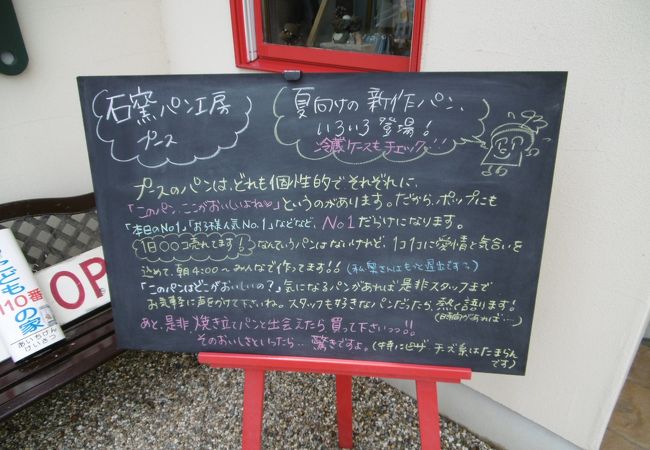 石窯パン工房
プース
夏向けの新作パン、
いろいろ登場!
冷蔵ケースもチェックで!!
プースのパンは、どれも個性的でそれぞれに、
「このパン、ここがおいしいよね♡」というのがあります。だから、ポップにも
「本日のNo.1」「お子様人気No.1」などなど、No1だらけになります。
「1日〇〇コ売れてます!」なんていうパンはないけれど、1コ1コに愛情と気合いを
込めて、朝4:00〜みんなで作ってます!!(私、奥さんはもっと遅出です〜)
「このパンはどこがおいしいの?」気になるパンがあれば是非スタッフまで
お気軽に声をかけて下さいね。スタッフも好きなパンだったら、熱く語ります!
(時間があれば…)
あと、是非焼き立てパンと出会えたら買って下さいっっ!!
そのおいしさといったら…驚きですよ。(特にピザ、チーズ系はたまらん
です)
OP
ども
110番
の家
あいちけん
けいさつ